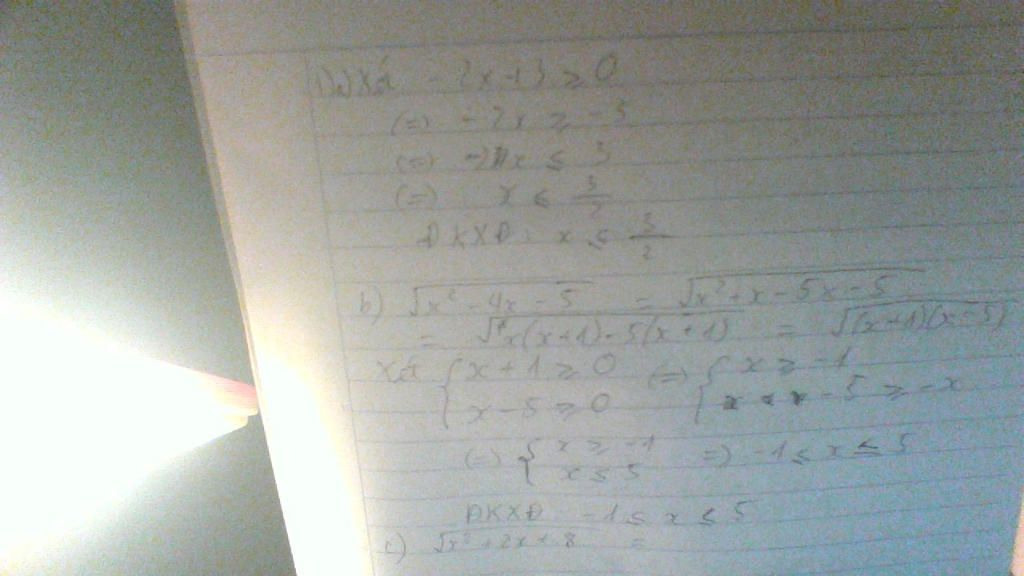 1) a) Xét -2x+3 ≥ 0
(=) -2x ≥ -3
(=) x ≤ 3
(=) x ≤ 3/2
ĐKXĐ: x ≤ 3/2
b) √(x² - 4x - 5) = √(x² + x - 5x - 5)
= √(x(x+1) - 5(x+1)) = √((x+1)(x-5))
Xét { x+1 ≥ 0 (=) { x ≥ -1
{ x - 5 ≥ 0 { -5 ≥ -x
(=) { x ≥ -1 =) -1 ≤ x ≤ 5
{ x ≤ 5
ĐKXĐ -1 ≤ x ≤ 5
c) √(x² + 2x + 8) =